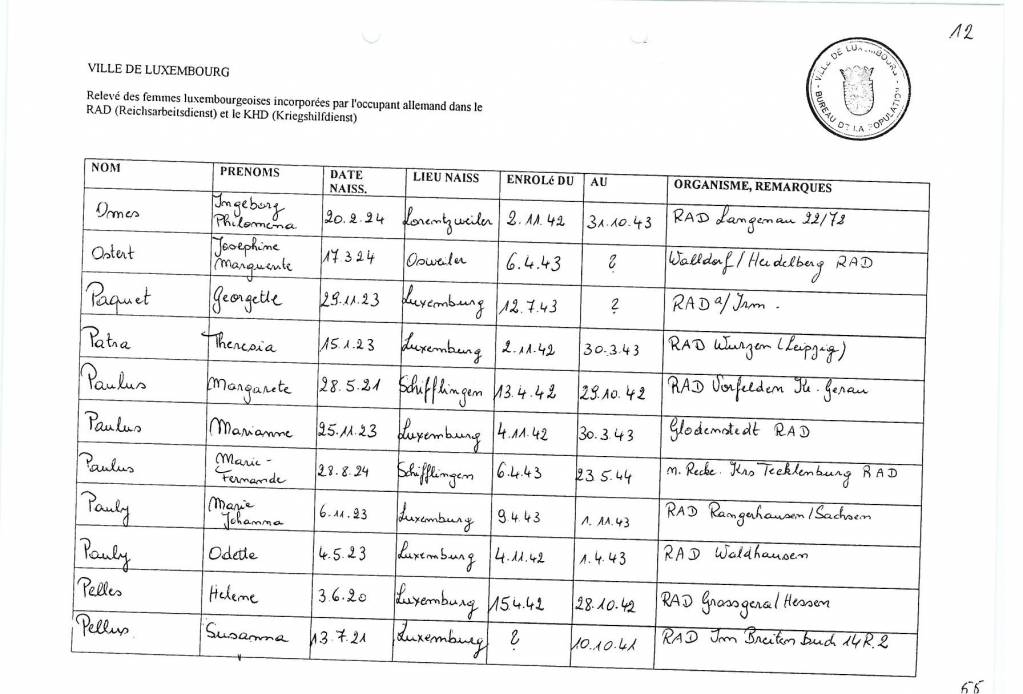 12
VILLE DE LUXEMBOURG
VILLE DE LUXEMBOURG
BUREAU DE LA POPULATION
Relevé des femmes luxembourgeoises incorporées par l'occupant allemand dans le
RAD (Reichsarbeitsdienst) et le KHD (Kriegshilfdienst)
NOM PRENOMS DATE NAISS. LIEU NAISS ENROLé DU AU ORGANISME, REMARQUES
Omes Ingeborg Philomena 20.2.24 Lorentzweiler 2.11.42 31.10.43 RAD Langenau 22/72
Ostert Josephine Marguerite 17 3 24 Osweiler 6.4.43 ? Walldorf/Heidelberg RAD
Paquet Georgette 29.11.23 Luxemburg 12.7.43 ? RAD a/Irm.
Patra Theresia 15.1.23 Luxemburg 2.11.42 30.3.43 RAD Wurzen (Leipzig)
Paulus Margarete 28.5.21 Schifflingen 13.4.42 29.10.42 RAD Vorfelden Kr. Gerau
Paulus Marianne 25.11.23 Luxemburg 4.11.42 30.3.43 Glodenstedt RAD
Paulus Marie-Fernande 28.8.24 Schifflingen 6.4.43 23 5.44 m. Recke. Krs Tecklenburg RAD
Pauly Marie Johanna 6.11.23 Luxemburg 9 4.43 1.11.43 RAD Rangerhausen/Sachsen
Pauly Odette 4.5.23 Luxemburg 4.11.42 1.4.43 RAD Waldhausen
Pelles Helene 3.6.20 Luxemburg 15.4.42 28.10.42 RAD Grossgera/Hessen
Pellus Susanna 13.7.21 Luxemburg ? 10.10.41 RAD Im Breitenbuch 14R.2